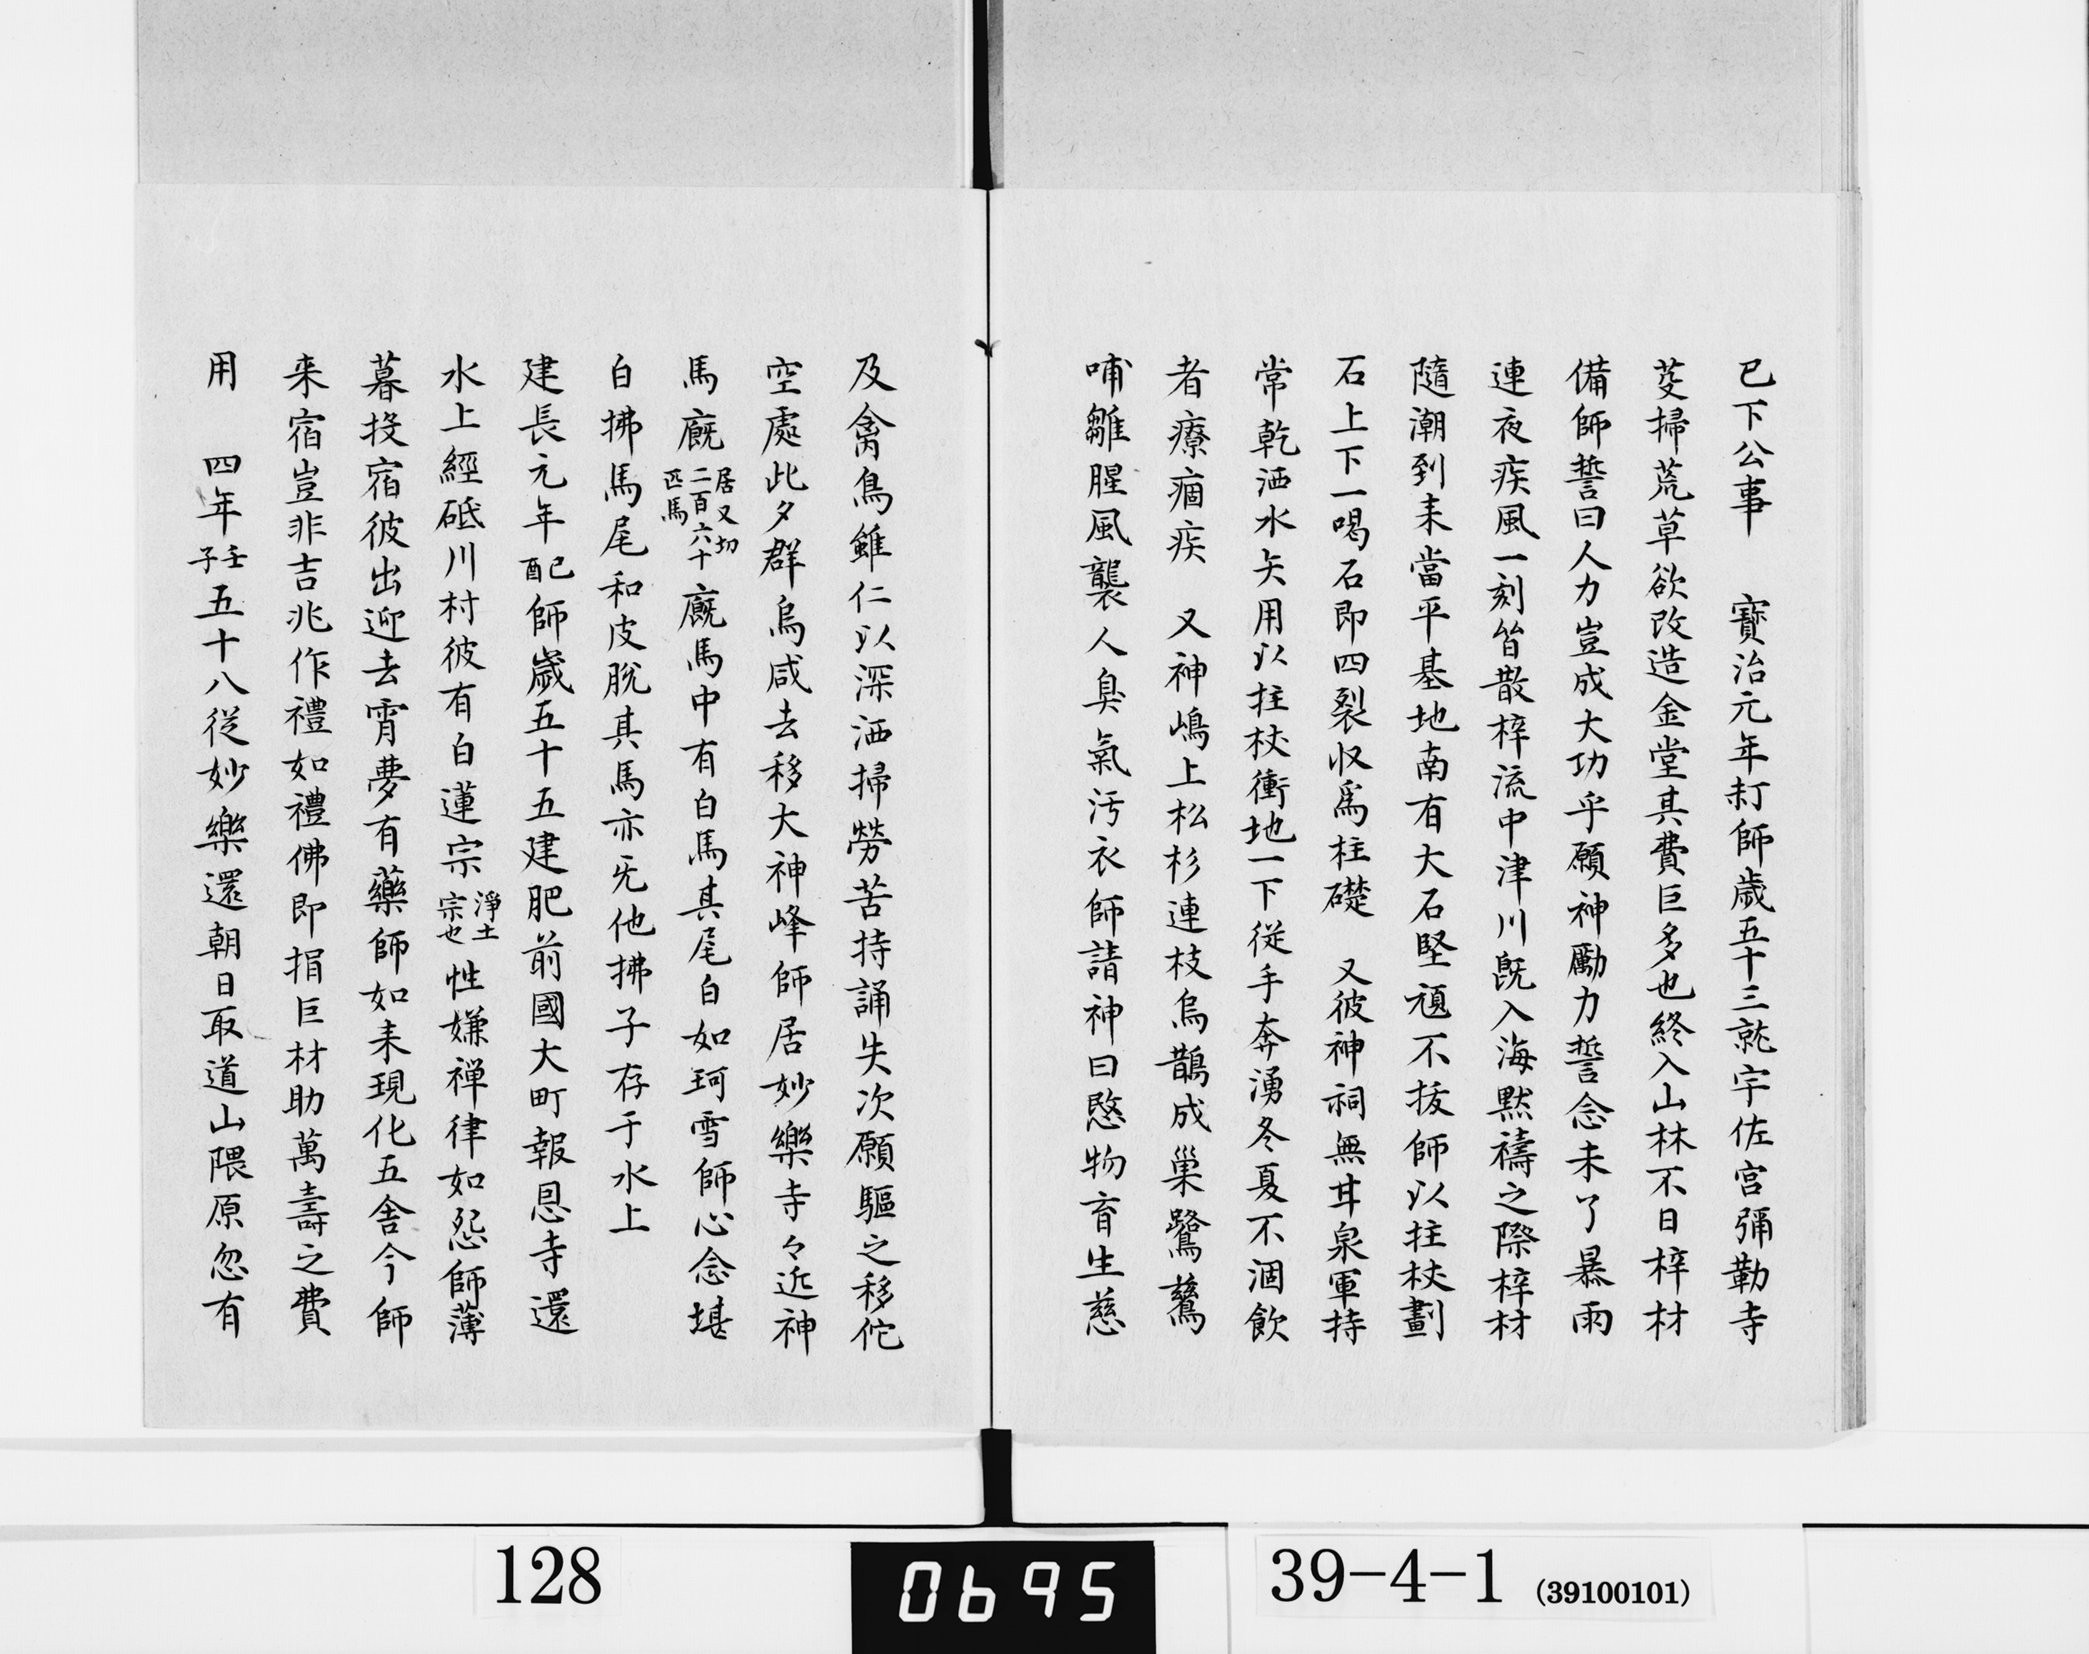 已下公事　寶治元年打師歳五十三就宇佐宮彌勒寺
芟掃荒草欲改造金堂其費巨多也終入山林不日梓材
備師誓曰人力豈成大功乎願神勵力誓念未了暴雨
連夜疾風一刻皆散梓流中津川既入海黙禱之際梓材
隨潮到来當平基地南有大石堅頑不拔師以拄杖劃
石上下一喝石即四裂収爲柱礎　又彼神祠無井泉軍持
常乾洒水欠用以拄杖衝地一下從手奔湧冬夏不涸飲
者療痼疾　又神嶋上松杉連枝烏鵲成巢鷺鷥
哺雛腥風襲人臭氣汚衣師請神曰愍物育生慈
及禽鳥雖仁以深洒掃勞苦持誦失次願驅之移佗
空處此夕群烏咸去移大神峰師居妙樂寺々近神
馬廐居又切二百六十匹馬廐馬中有白馬其尾白如珂雪師心念堪
白拂馬尾和皮脱其馬亦无他拂子存于水上
建長元年己酉師歳五十五建肥前國大町報恩寺還
水上經砥川村彼有白蓮宗淨土宗也性嫌禪律如怨師薄
暮投宿彼出迎去宵夢有藥師如来現化五舍今師
来宿豈非吉兆作禮如禮佛即捐巨材助萬壽之費
用　四年壬子五十八從妙樂還朝日取道山隈原忽有
128
0695
39-4-1 (39100101)